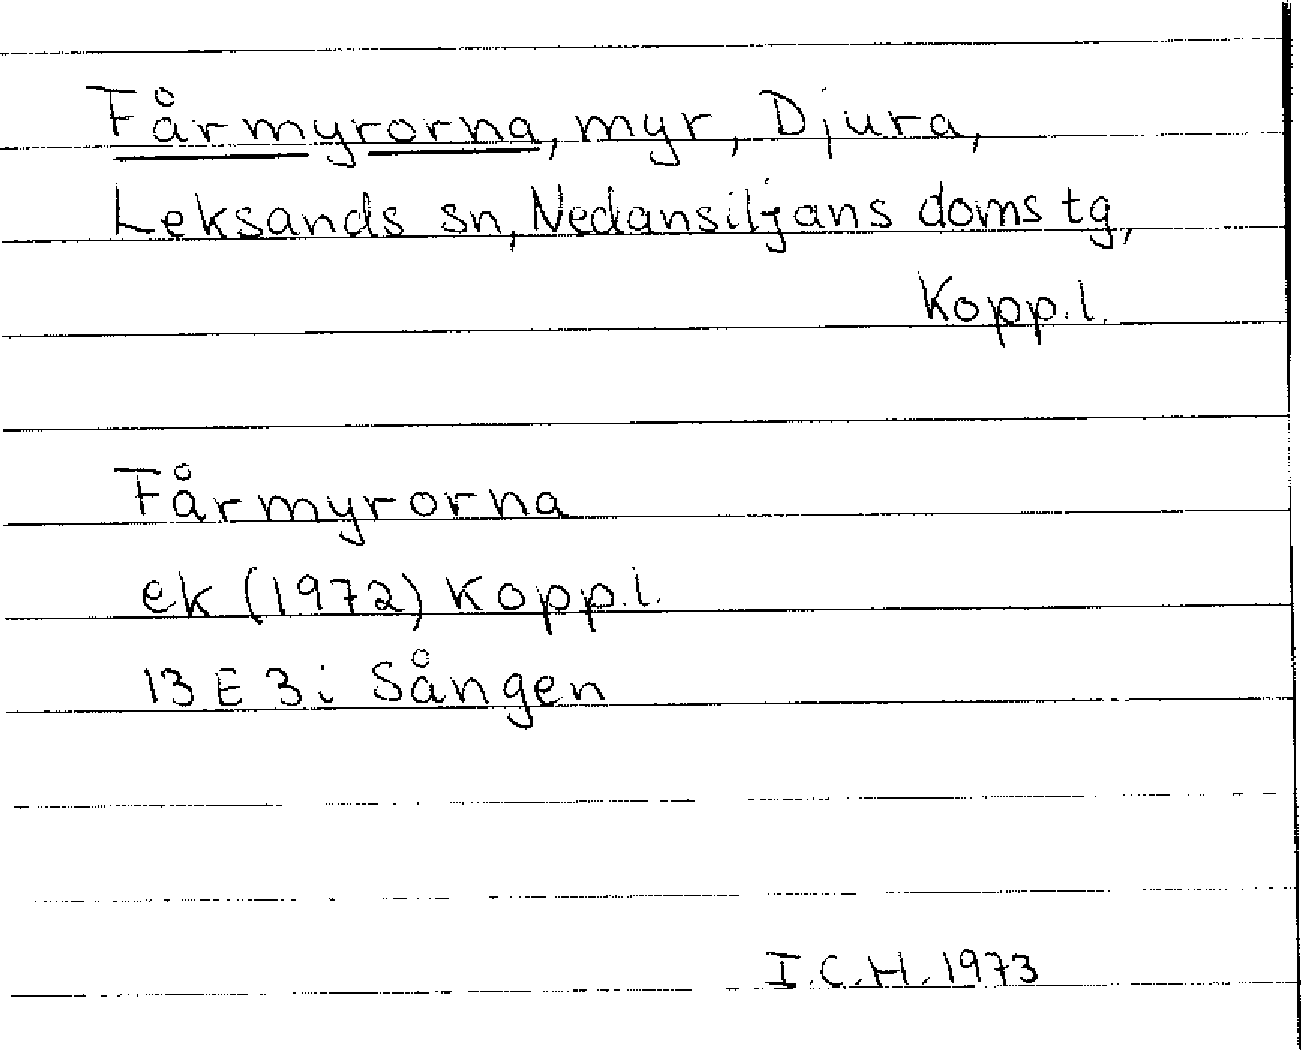 Fårmyrorna, myr, Djura,
Leksands sn, Nedansiljans doms tg,
Kopp.l.
Fårmyrorna
ek (1972) Kopp.l.
13 E 3i Sången
I.C.H. 1973